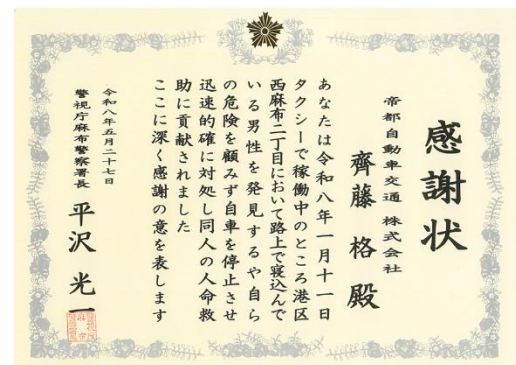 感謝状
帝都自動車交通 株式会社
齊藤 格 殿
あなたは令和八年一月十一日
タクシーで稼働中のところ港区
西麻布二丁目において路上で寝込んで
いる男性を発見するや自ら
の危険を顧みず自車を停止させ
迅速的確に対処し同人の人命救
助に貢献されました
ここに深く感謝の意を表します
令和八年五月二十七日
警視庁麻布警察署長 平沢 光一